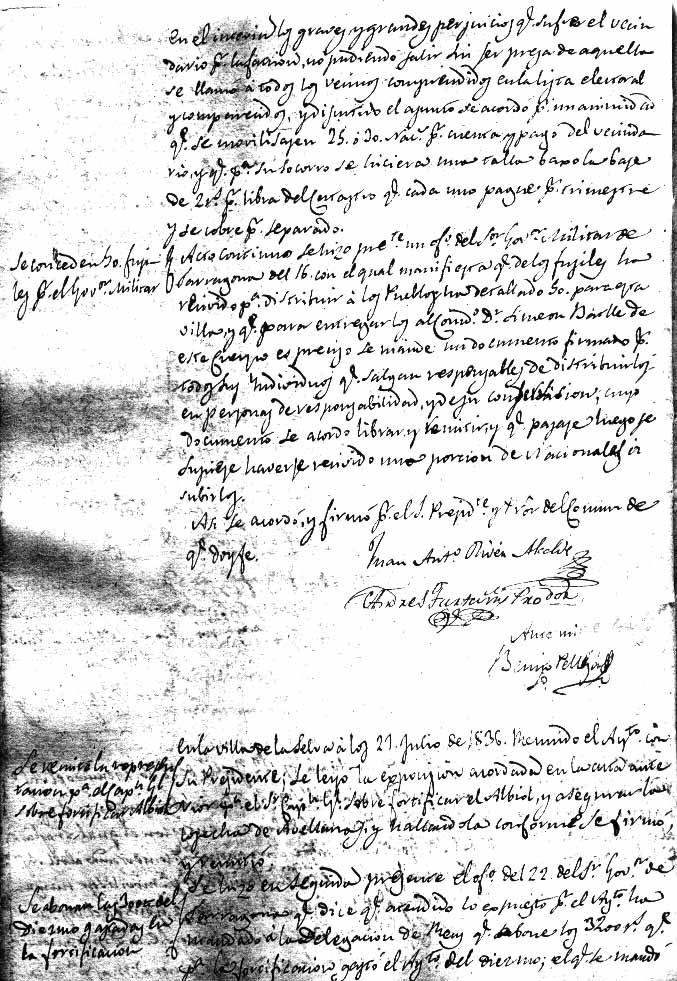 en el interin los graves y grandes perjuicios q.e sufre el vecin
dario p.r la faccion, no pudiendo salir sin ser presa de aquella
se llamó á todos los vecinos comprendidos en la lista electoral
y comparecidos, y discutido el asunto se acordó p.r unanimidad
q.e se movilisasen 25. ó 30. Nac.s p.r cuenta y pago del vecinda
rio, y q.e p.a su socorro se hiciera una talla baxo la base
de 2 r.s p.r libra del Catastro q.e cada uno pague p.r trimestre
y se cobre p.r separado.
Se conceden 50. fusi
les p.r el Gov.or Militar
Acto continuo se hizo pre.te un of.o del S.or Gov.or Militar de
Tarragona del 16. con el qual manifiesta q.e de los fusiles ha
recivido p.a distribuir á los Pueblos ha detallado 50. para esta
villa, y q.e para entregarlos al Com.te D.n Simeon Batlle de
este Cuerpo es preciso se mande un documento firmado p.r
todos sus Individuos q.e salgan responsables de distribuirlos
en personas de responsabilidad, y de su conservasion, cuyo
documento se acordó librar, y remitir, y q.e pasase luego se
supiese haverse recivido una porcion de Nacionales á
subirlos.
Asi se acordó, y firmó p.r el S. Presid.te y + r.or del Comun de
q.e doy fe.
Juan Ant.o Oliver Alcalde
Andres
Ante mi
En la villa de la Selva á los 27. Julio de 1836. Reunido el Ay.to con
Se remite la represen
tacion p.a el Cap.n G.l
sobre fortificar Albiol
su Presidente; se leyó la exposicion acordada en la acta ante
rior p.a el S.r Cap.n G.l sobre fortificar el Albiol, y asegurar la
cosecha de Avellanas, y hallandola conforme se firmó
y remitió.
Se abonan los 3200 del
Diezmo gastados en
la fortificacion
Se hizo en seguida presente el of.o del 22. del S.r Gov.or de
Tarragona q.e dice q.e atendido lo expuesto p.r el Ay.to ha
mandado á la Delegacion de Reus q.e abone los 3200 r.s q.e
p.a la fortificacion gastó el Ay.to del diezmo; el q.e se mandó